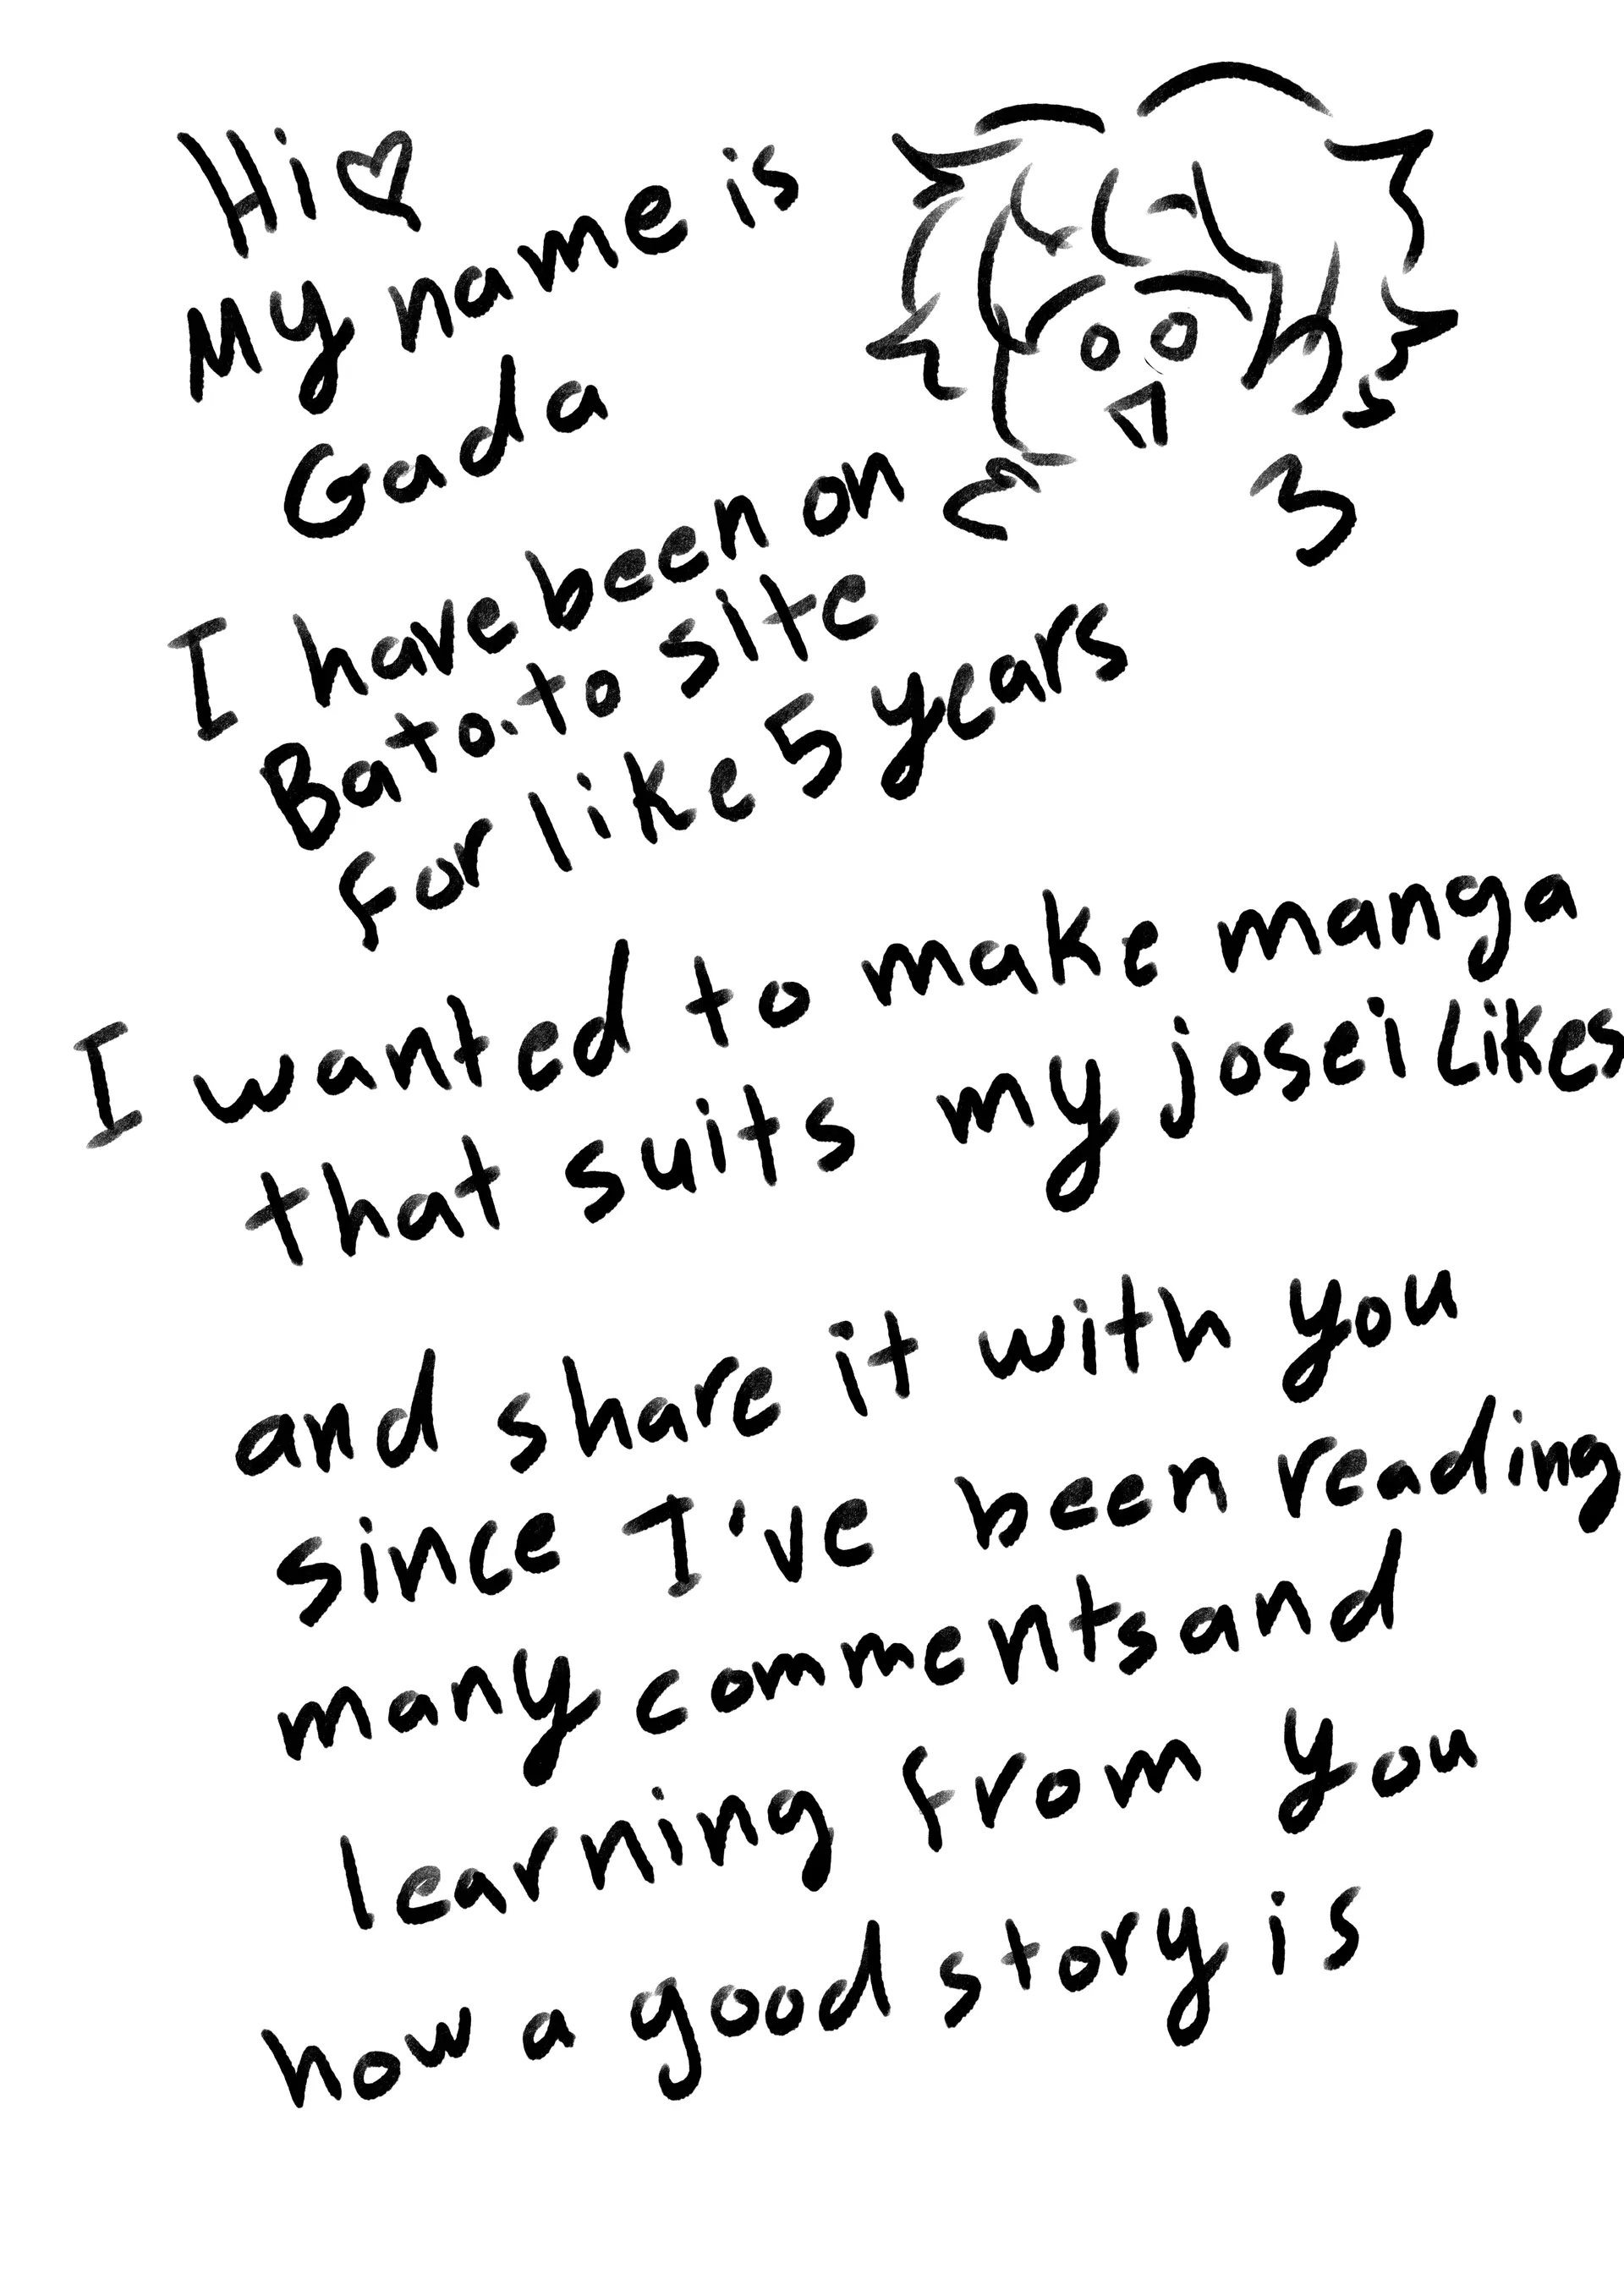 Hi♡
My name is
Gada
I have been on
Bato.to site
for like 5 years
I wanted to make manga
that suits my josei Likes
and share it with you
since I've been reading
many comments and
learning from you
how a good story is